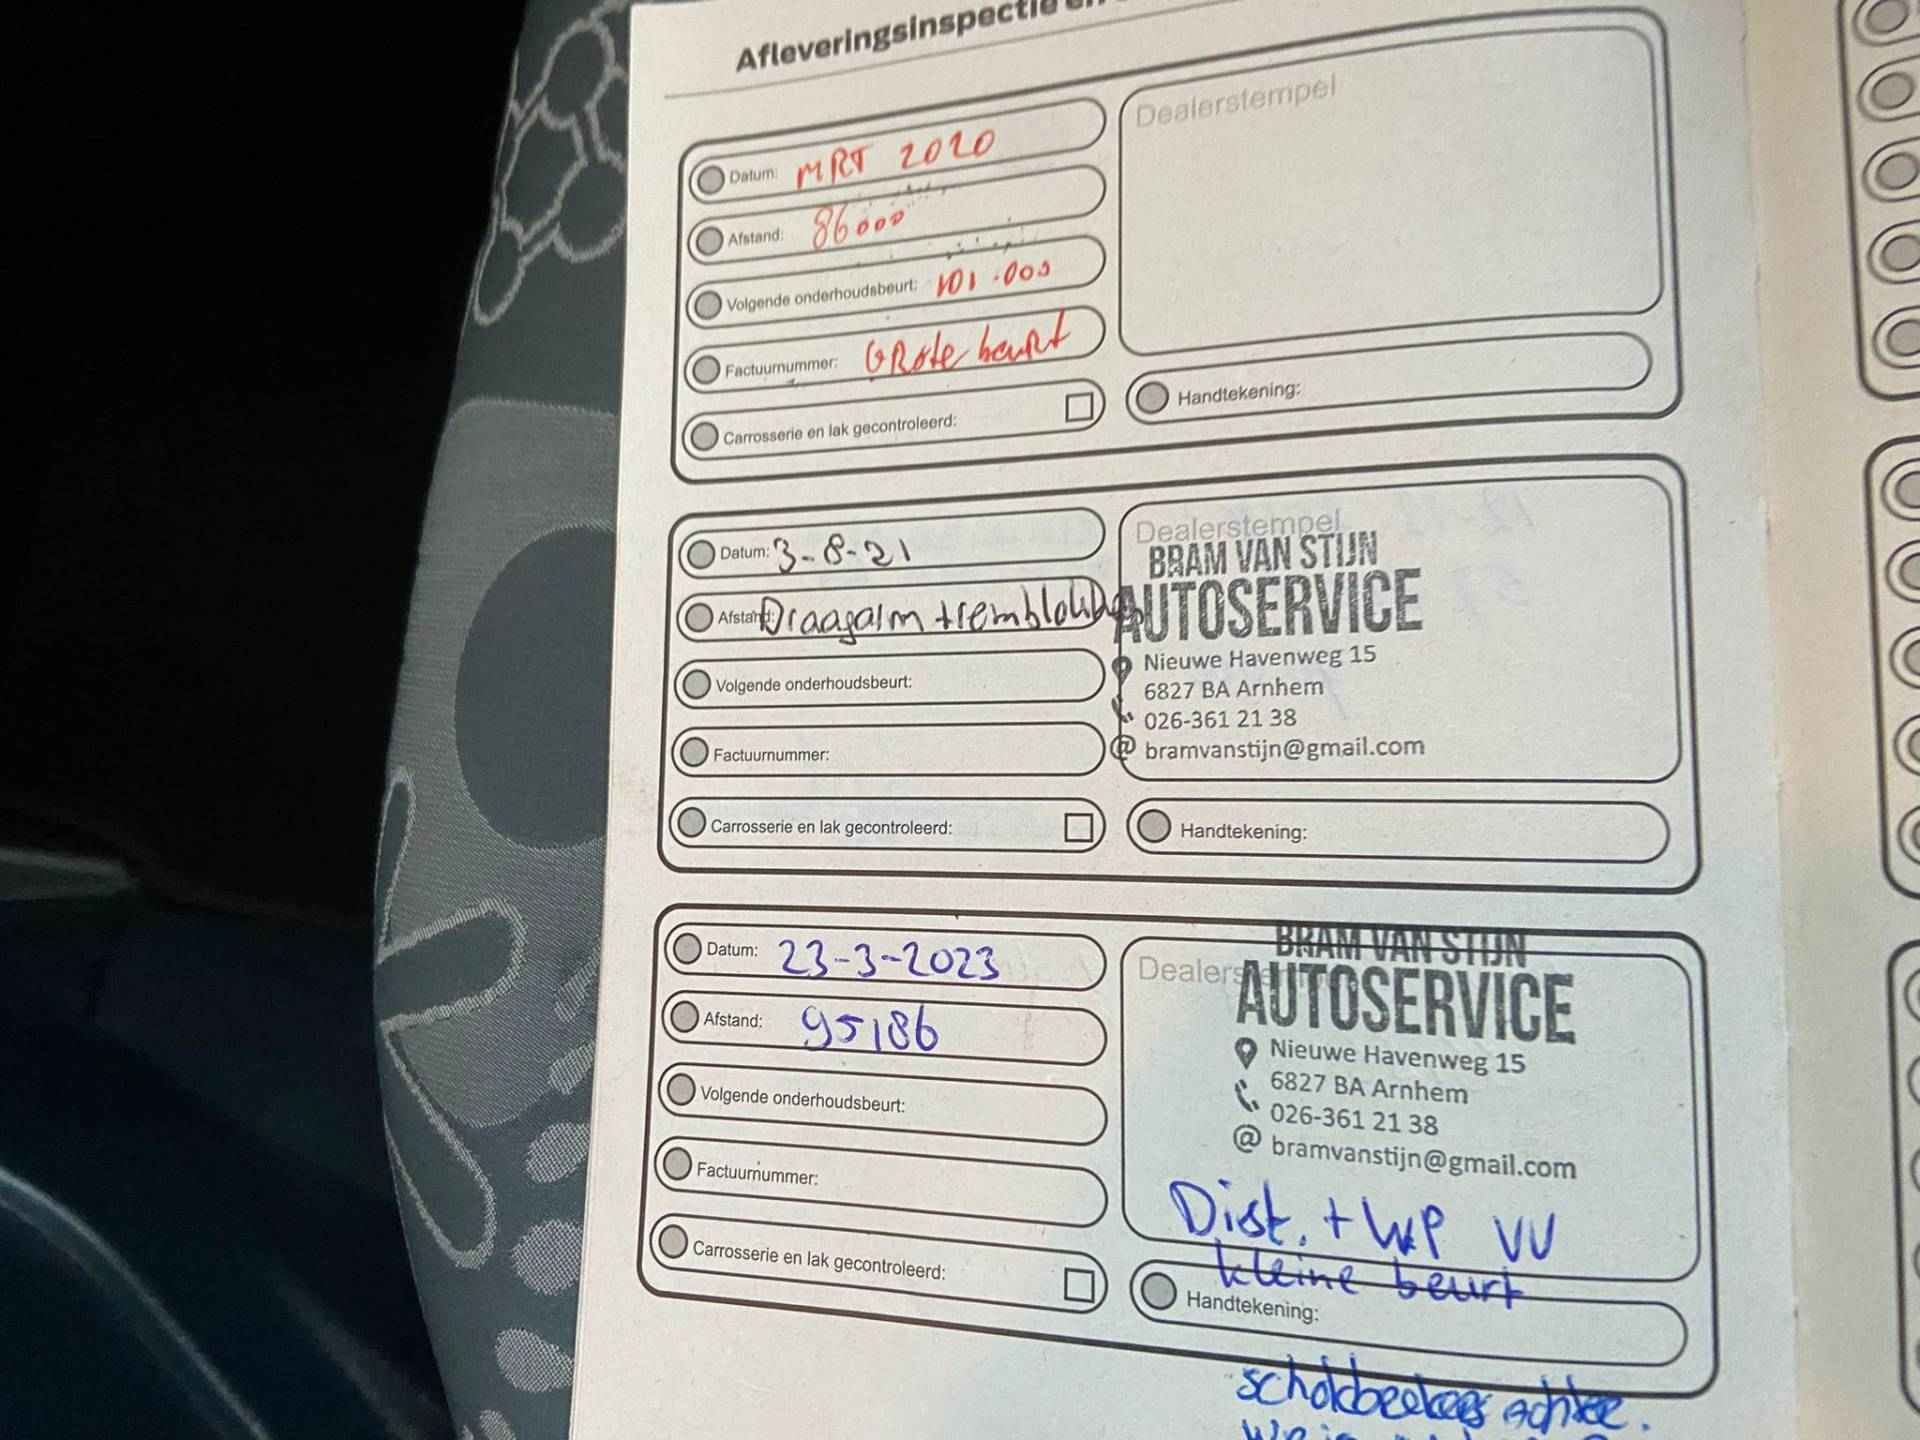 Afleveringsinspectie en
Datum: MRT 2020
Afstand: 86000
Volgende onderhoudsbeurt: 101.000
Factuurnummer: GRote beuRt
Carrosserie en lak gecontroleerd:
Dealerstempel
Handtekening:
Datum: 3-8-21
Afstand: Draagarm + remblokken
Volgende onderhoudsbeurt:
Factuurnummer:
Carrosserie en lak gecontroleerd:
Dealerstempel
BRAM VAN STIJN
AUTOSERVICE
Nieuwe Havenweg 15
6827 BA Arnhem
026-361 21 38
@ bramvanstijn@gmail.com
Handtekening:
Datum: 23-3-2023
Afstand: 95186
Volgende onderhoudsbeurt:
Factuurnummer:
Carrosserie en lak gecontroleerd:
Dealerstempel
BRAM VAN STIJN
AUTOSERVICE
Nieuwe Havenweg 15
6827 BA Arnhem
026-361 21 38
@ bramvanstijn@gmail.com
Dist. + WP VV
kleine beurt
Handtekening:
achter.